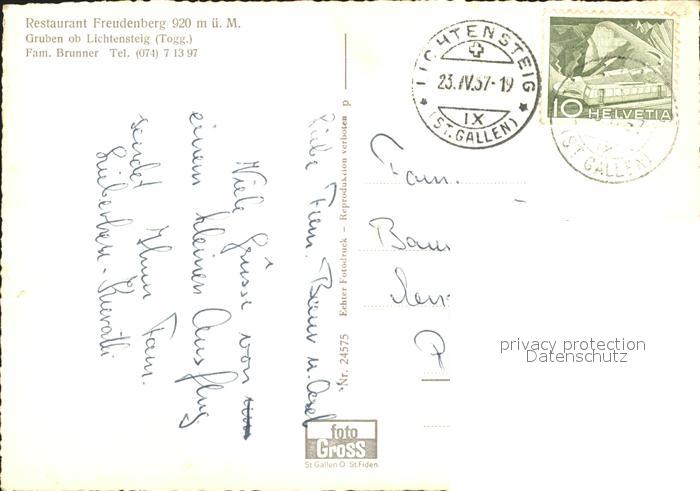 Restaurant Freudenberg 920 m ü. M.
Gruben ob Lichtensteig (Togg.)
Fam. Brunner Tel. (074) 7 13 97
Liebe Fam. Baur u.
Viele Grüsse von
einem kleinen Ausflug
sendet Ihnen Fam.
Nr. 24575 Echter Fotodruck – Reproduktion verboten p
foto
Gross
St Gallen O St.Fiden
LICHTENSTEIG
23.IV.57-19
IX
(ST. GALLEN)
10 HELVETIA
(ST. GALLEN)
Fam.
Bau
privacy protection
Datenschutz